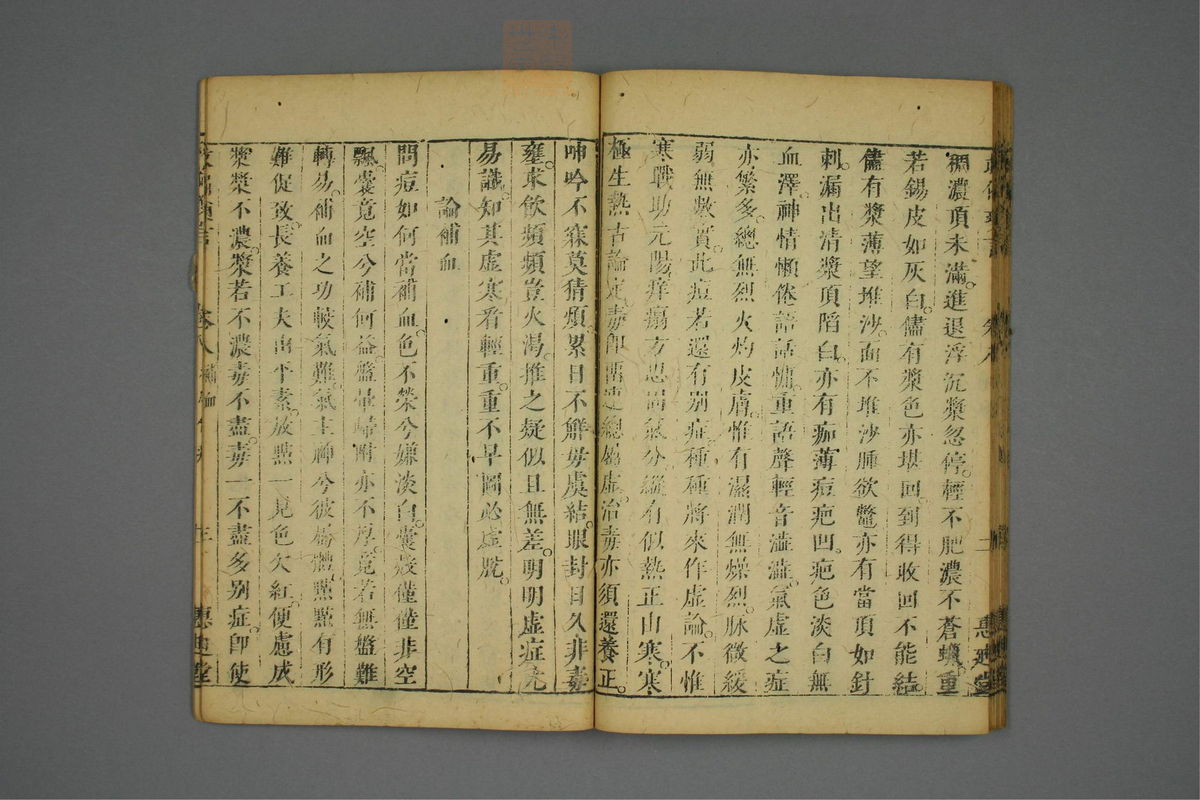 稠濃頂未滿。進退浮沉漿忽停。輕不肥濃不蒼蠟。重
若錫皮如灰白。儘有漿色亦堪回。到得收回不能結。
儘有漿薄望堆沙。面不堆沙腫欲鼈。亦有當頂如針
刺。漏出清漿頂陷白。亦有痂薄痘疤凹。疤色淡白無
血澤。神情懶倦語話慵。重語聲輕音澁澁。氣虛之症
亦繁多。總無烈火灼皮膚。惟有濕潤無燥烈。脉微緩
弱無數實。此痘若還有別症。種種將來作虛論。不惟
寒戰助元陽。癢塌方思固氣分。縱有似熱正由寒。寒
極生熱古論定。毒卽
總屬虛。治毒亦須還養正。
呻吟不寐莫猜煩。累日不解毋虞結。眼封日久非毒
壅。東飲頻頻豈火渴。推之疑似且無差。明明虛症尤
易識。知其虛寒看輕重。重不早圖必虛脫。
論補血
問痘如何當補血。色不榮兮嫌淡白。囊殼僅僅非空
飄。囊竟空兮補何益。盤暈歸附亦不厚。竟若無盤難
轉易。補血之功較氣難。氣主神兮彼屬體。點點有形
難促致。長養工夫由平素。放點一見色欠紅。便慮成
漿漿不濃。漿若不濃毒不盡。毒一不盡多別症。卽使
卷八 補血